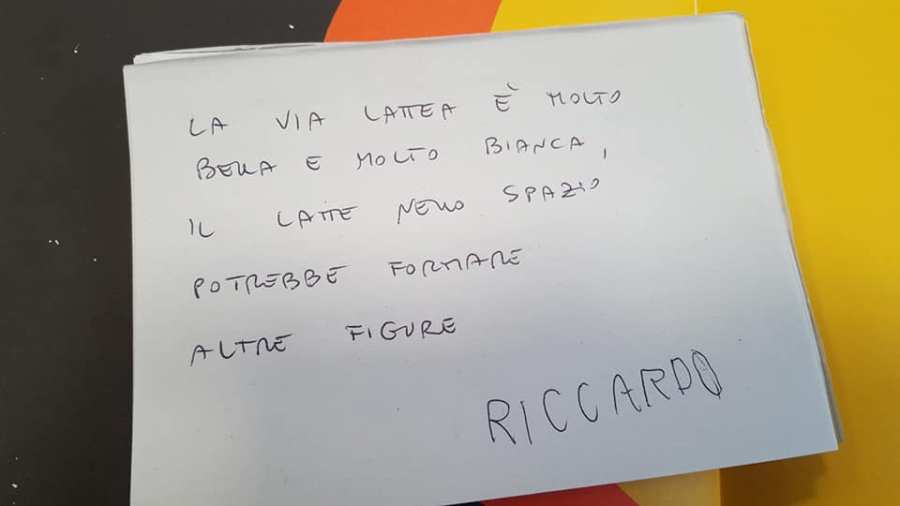 LA VIA LATTEA È MOLTO
BELLA E MOLTO BIANCA,
IL LATTE NELLO SPAZIO
POTREBBE FORMARE
ALTRE FIGURE
RICCARDO